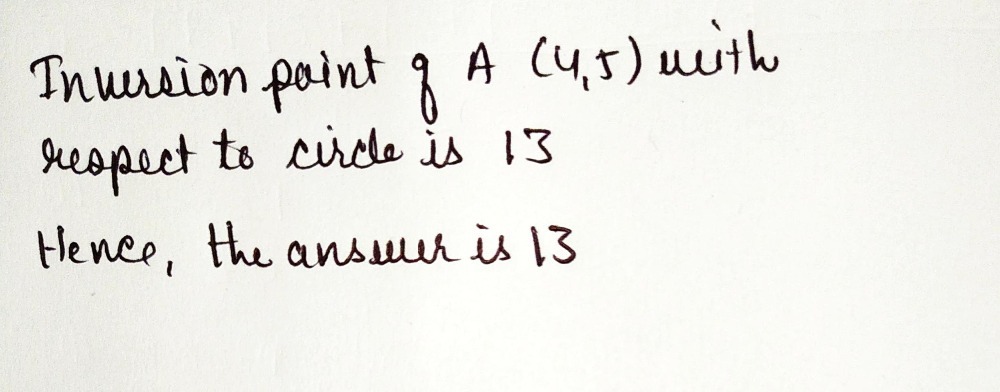 Inversion point of A (4,5) with
respect to circle is 13
Hence, the answer is 13